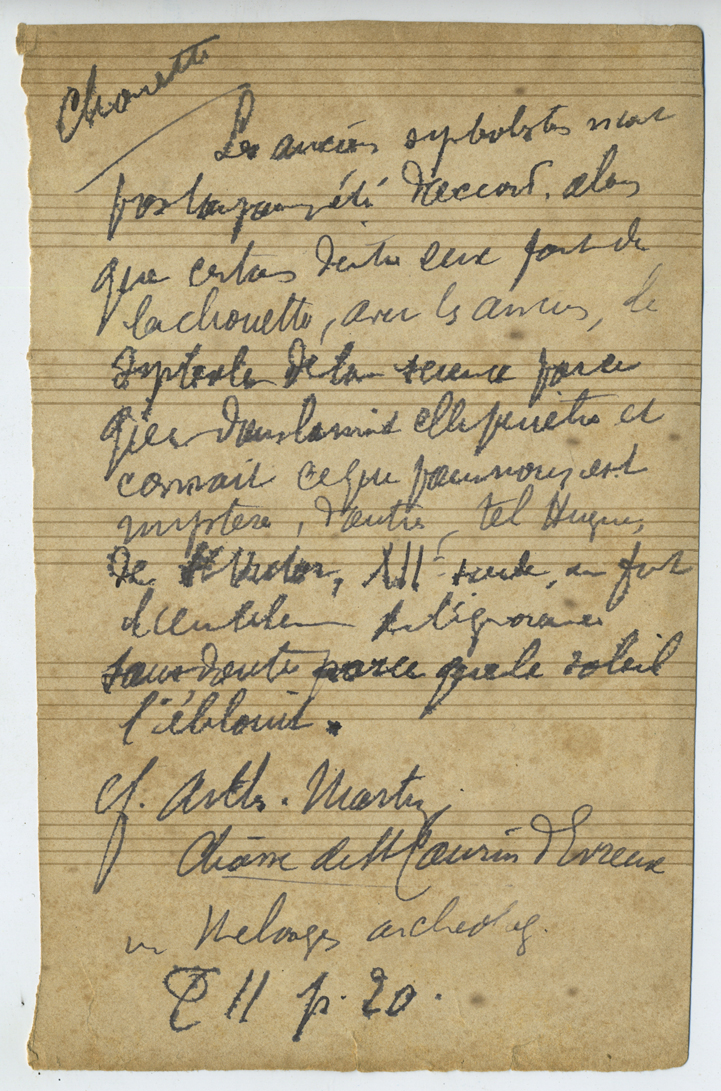 Chouette
Les anciens symbolistes n'ont
pas toujours été d'accord. alors
que certains d'entre eux font de
la chouette, avec les anciens, le
symbole de la science parce
que dans la nuit elle pénètre et
connait ce que pour nous est
mystère, d'autres, tel Hugues
de St Victor, XIIe siècle, en font
l'ignorance
sans doute parce que le soleil
l'éblouit.
cf. Arth. Martin
Châsse de St Taurin d'Evreux
in Mélanges archéolog.
T II p. 20.